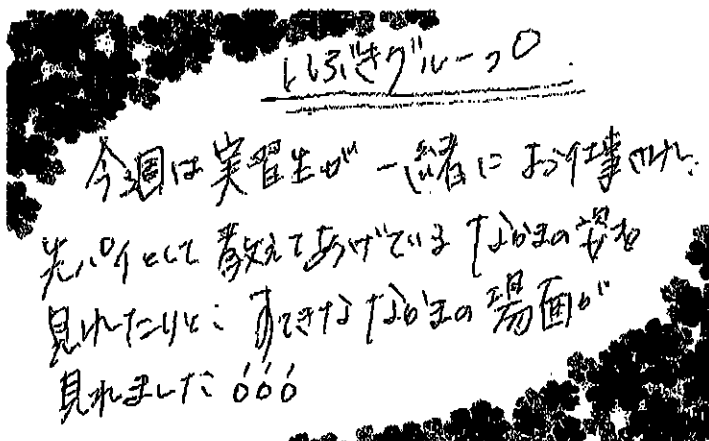 いぶきグループ
今週は実習生が一緒にお仕事され、
先パイとして教えてあげているなかまの姿も
見れたりと、すてきななかまの場面が
見れました